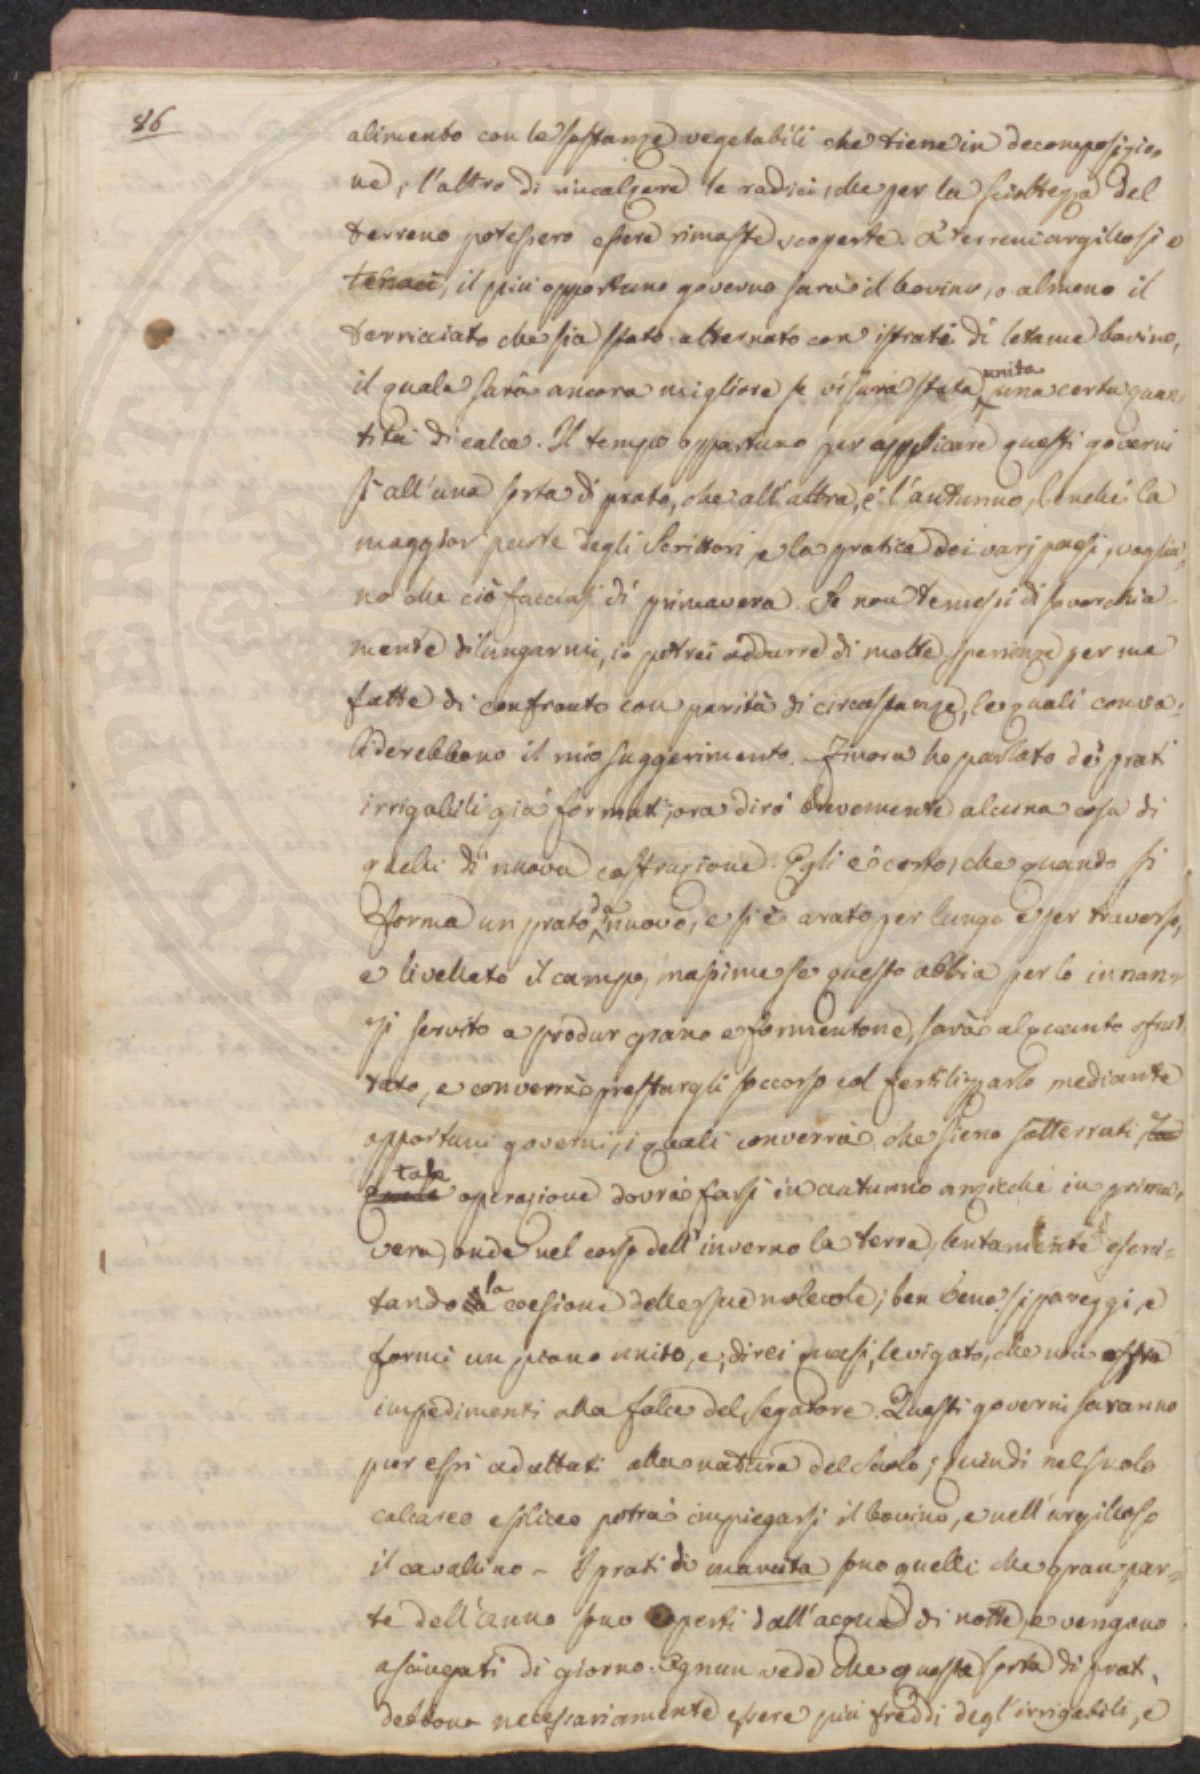 86
alimento con le sostanze vegetabili che tiene in decomposizio-
ne, l'altro di rincalzare le radici, che per la scioltezza del
terreno potessero essere rimaste scoperte. A' terreni argillosi e
tenaci, il più opportuno governo sarà il bovino, o almeno il
terricciato che sia stato alternato con istrati di letame bovino,
il quale sarà ancora migliore se vi sarà stata unita una certa quan-
tità di calce. Il tempo opportuno per applicare questi governi
sì all'una sorta di prato, che all'altra, è l'autunno, benchè la
maggior parte degli Scrittori, e la pratica dei varj paesi, voglia-
no che ciò facciasi di primavera. Se non temessi di soverchia-
mente dilungarmi, io potrei addurre di molte sperienze per me
fatte di confronto con parità di circostanze, le quali conva-
liderebbono il mio suggerimento. Finora ho parlato dei prati
irrigabili già formati; ora dirò brevemente alcuna cosa di
quelli di nuova costruzione. Egli è certo, che quando si
forma un prato di nuovo, e si è arato per lungo e per traverso,
e livellato il campo, massime se questo abbia per lo innan-
zi servito a produr grano e formentone, sarà alquanto sfrut-
tato, e converrà prestargli soccorso col fertilizzarlo mediante
opportuni governi, i quali converrà che sieno sotterrati,
tale operazione dovrà farsi in autunno anzichè in prima-
vera, onde nel corso dell'inverno la terra, lentamente eserci-
tando la coesione delle sue molecole; ben bene si pareggi, e
formi un piano unito, e, direi quasi, levigato, che non offra
impedimenti alla falce del segatore. Questi governi saranno
pur essi adattati alla natura del suolo; quindi nel suolo
calcareo e siliceo potrà impiegarsi il bovino, e nell'argilloso
il cavallino – I prati di marcita sono quelli che gran par-
te dell'anno sono coperti dall'acqua di notte, e vengono
asciugati di giorno. Ognun vede che questa sorta di prati
debbono necessariamente essere più freddi degl'irrigabili, e